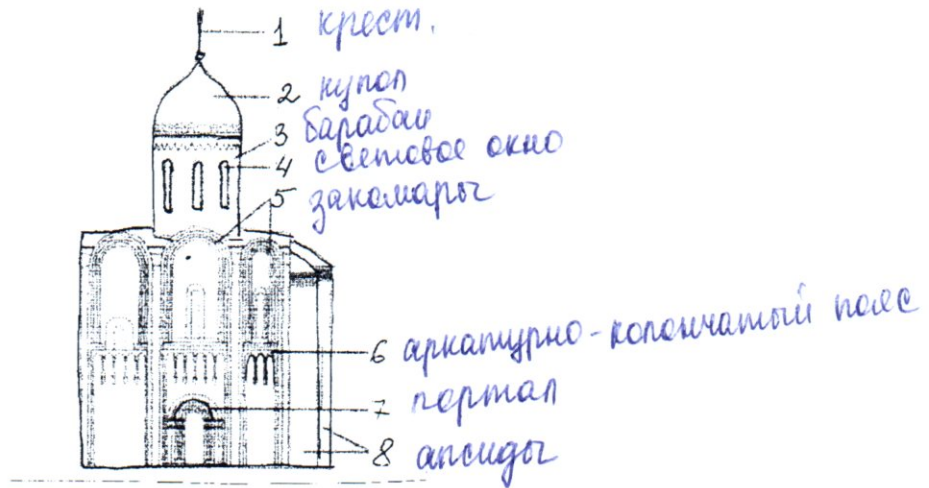 1 крест.
2 купол
3 барабан
4 световое окно
5 закомары
6 аркатурно-колончатый пояс
7 портал
8 апсиды